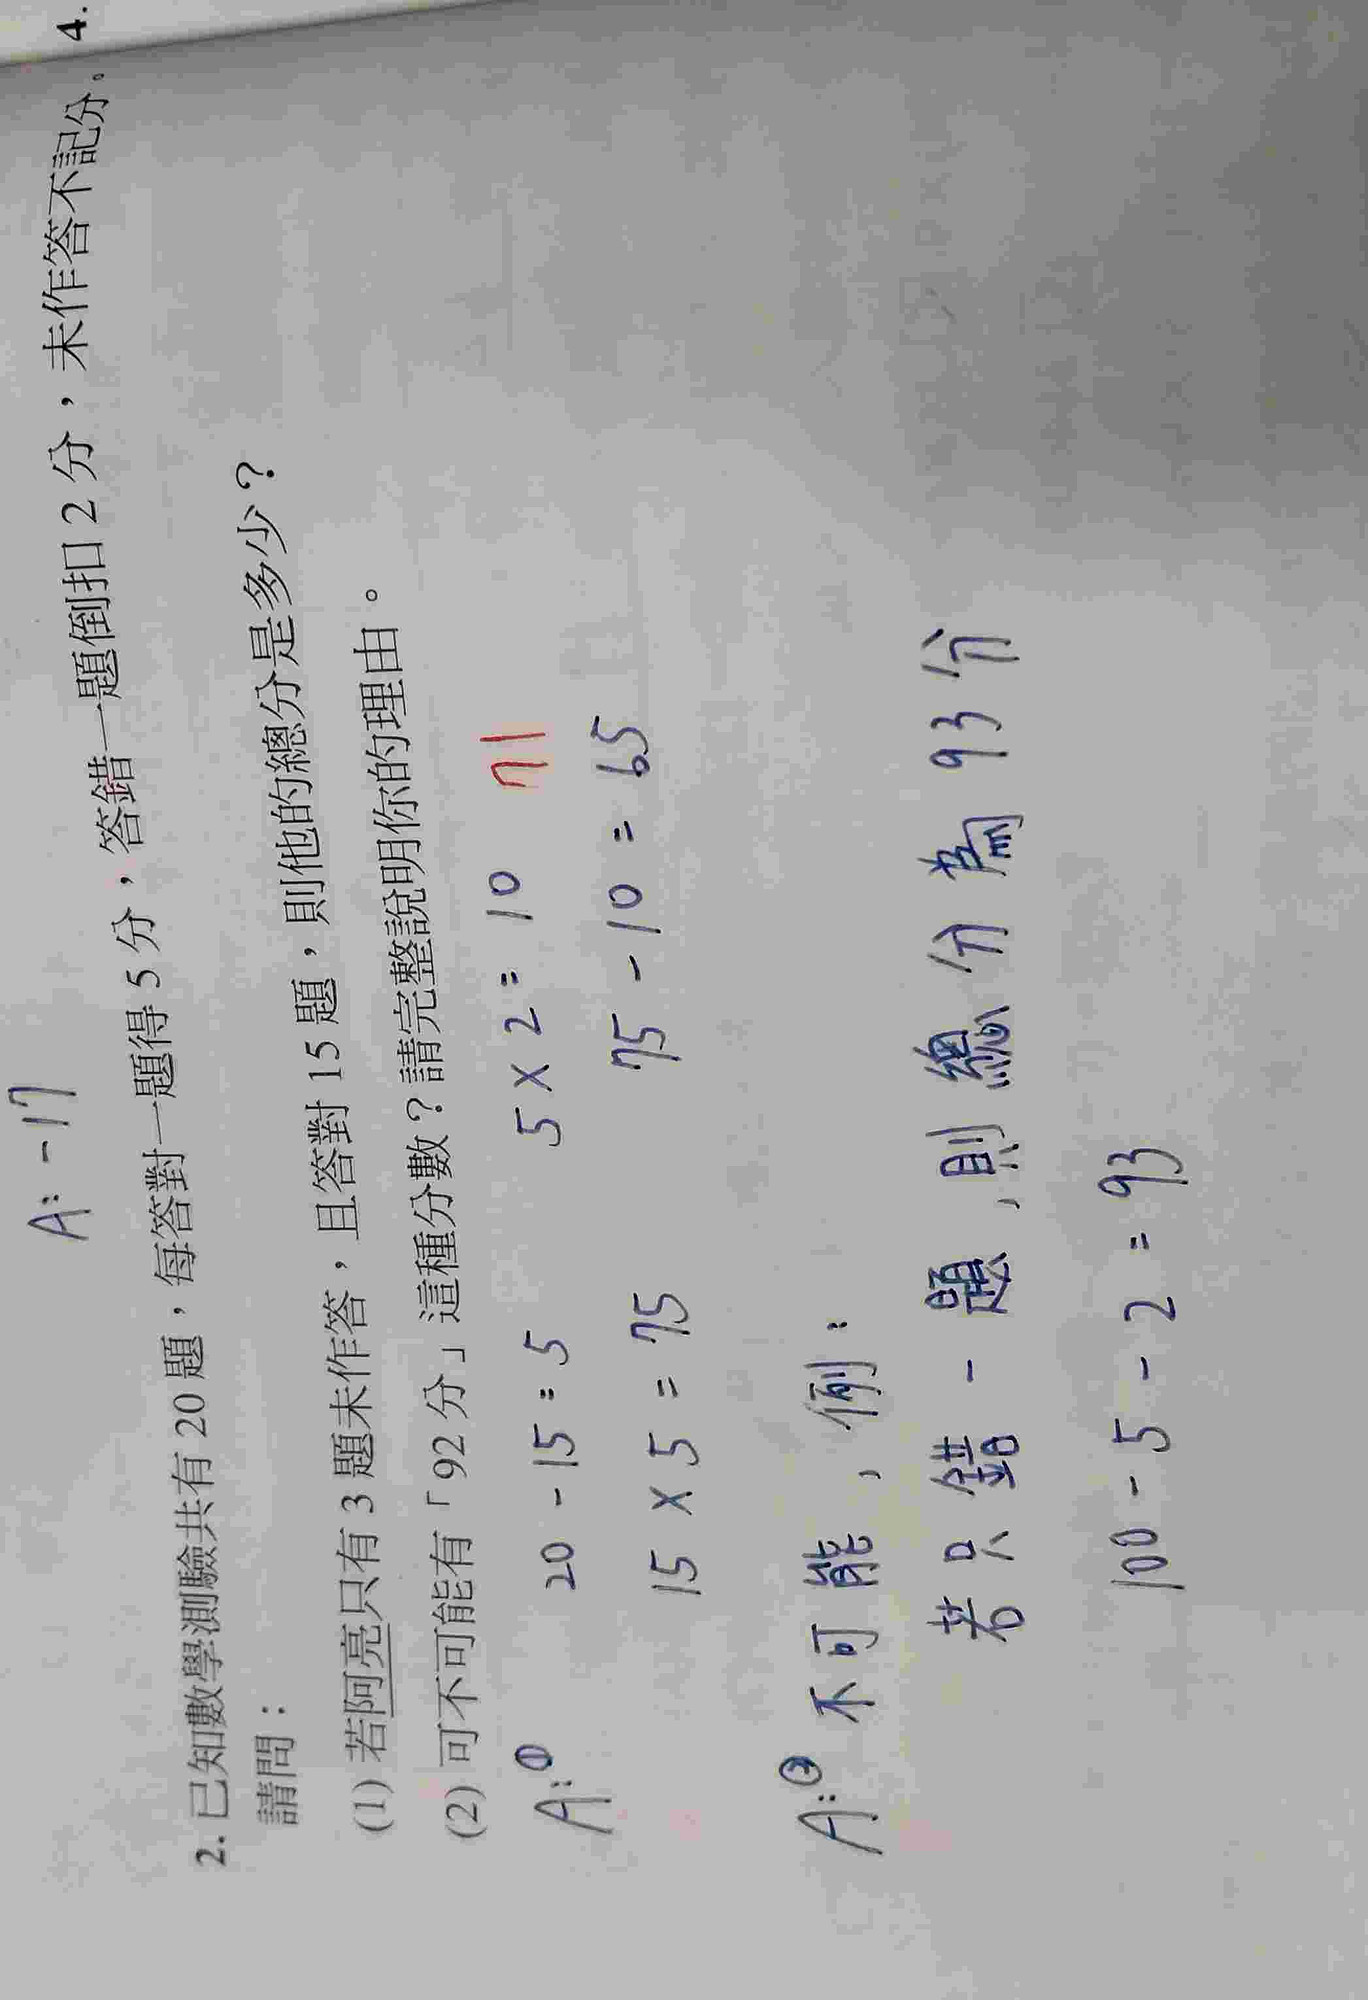 4.
A: -17
2. 已知數學測驗共有 20 題，每答對一題得 5 分，答錯一題倒扣 2 分，未作答不記分。
請問：
(1) 若阿亮只有 3 題未作答，且答對 15 題，則他的總分是多少？
(2) 可不可能有「92 分」這種分數？請完整說明你的理由。
A:① 20 - 15 = 5 5 × 2 = 10 71
15 × 5 = 75 75 - 10 = 65
A:② 不可能，例：
若只錯一題，則總分為 93 分
100 - 5 - 2 = 93